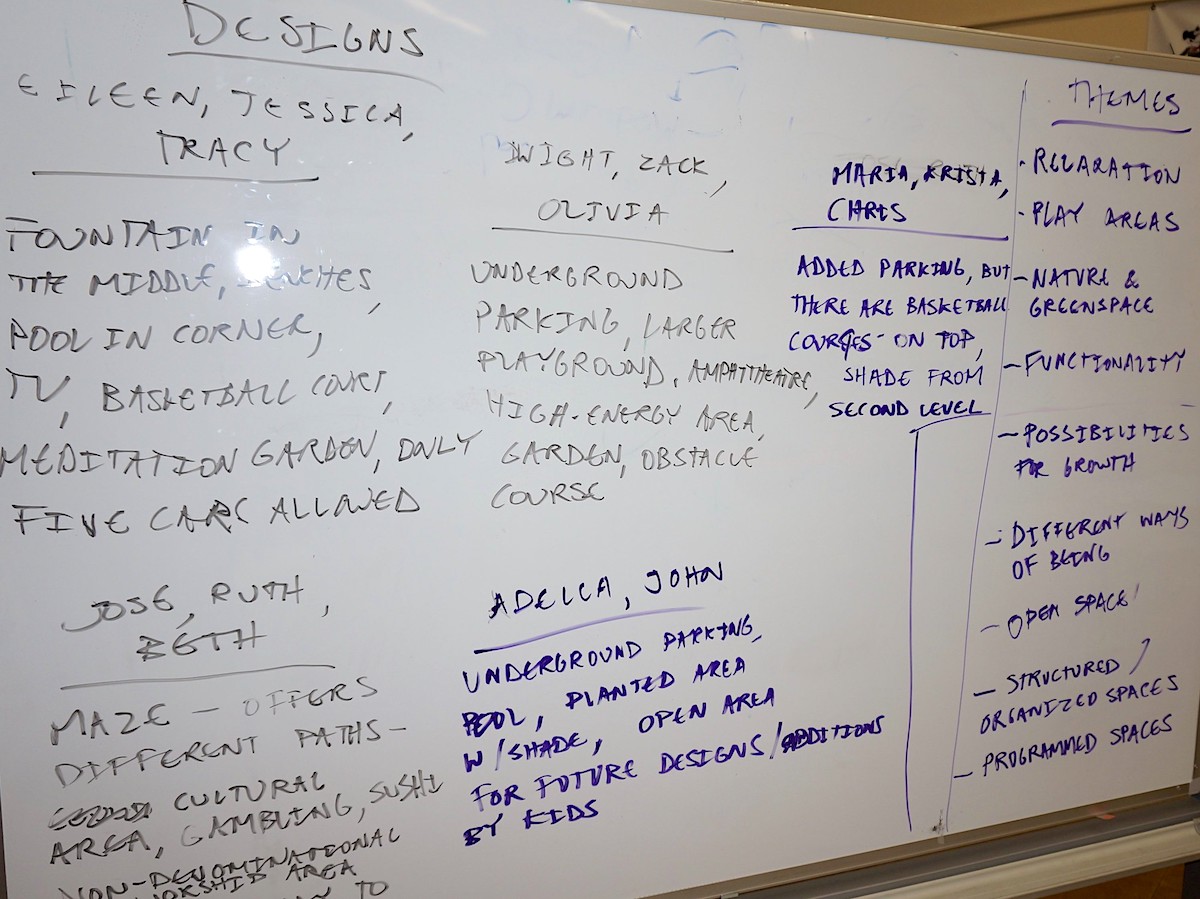 DESIGNS
EILEEN, JESSICA,
TRACY
FOUNTAIN IN
THE MIDDLE, BENCHES,
POOL IN CORNER,
TV, BASKETBALL COURT,
MEDITATION GARDEN, ONLY
FIVE CARS ALLOWED
DWIGHT, ZACK,
OLIVIA
UNDERGROUND
PARKING, LARGER
PLAYGROUND, AMPHITHEATRE,
HIGH-ENERGY AREA,
GARDEN, OBSTACLE
COURSE
MARIA, KRISTA,
CHRIS
ADDED PARKING, BUT
THERE ARE BASKETBALL
COURTS ON TOP,
SHADE FROM
SECOND LEVEL
JOSE, RUTH,
BETH
MAZE – OFFERS
DIFFERENT PATHS –
CULTURAL
AREA, GAMBLING, SUSHI
NON-DENOMINATIONAL
WORSHIP AREA
TO
ADELLA, JOHN
UNDERGROUND PARKING,
POOL, PLANTED AREA
W/SHADE, OPEN AREA
FOR FUTURE DESIGNS/ADDITIONS
BY KIDS
THEMES
· RELAXATION
· PLAY AREAS
– NATURE &
GREENSPACE
– FUNCTIONALITY
– POSSIBILITIES
FOR GROWTH
– DIFFERENT WAYS
OF BEING
– OPEN SPACE
– STRUCTURED/
ORGANIZED SPACES
– PROGRAMMED SPACES